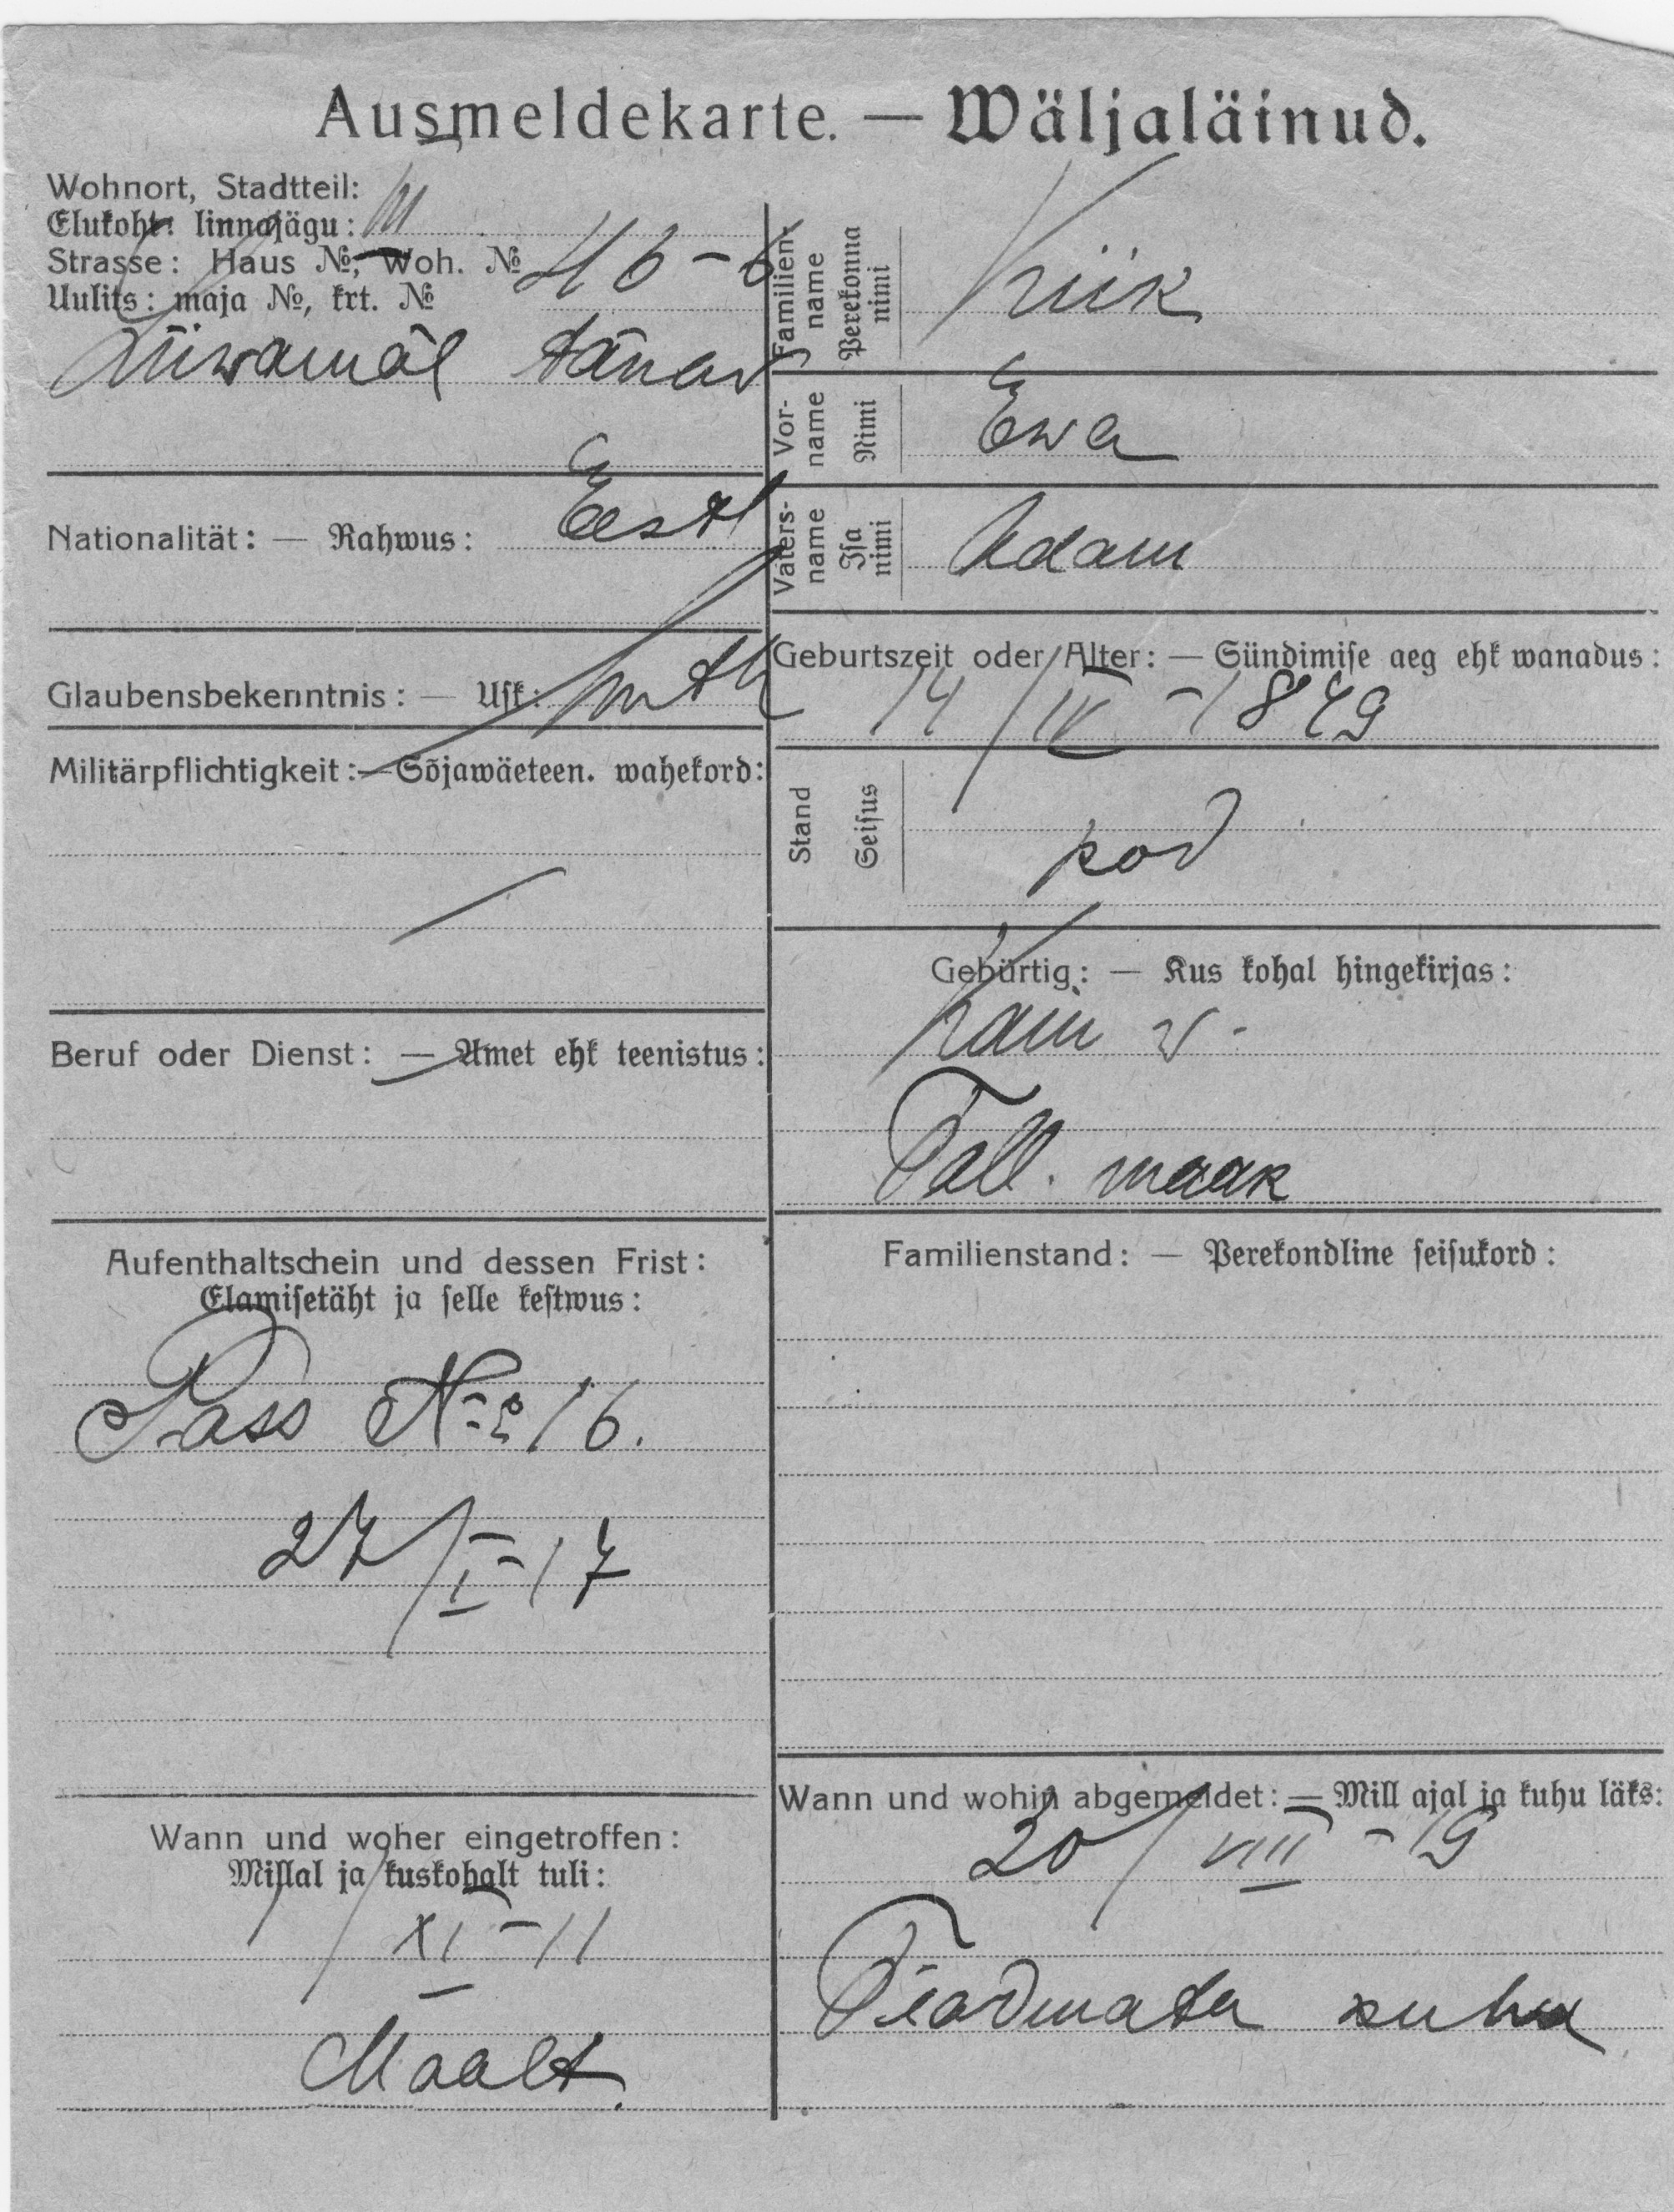 Ausmeldekarte. — Wäljaläinud.
Wohnort, Stadtteil:
Elukoht: linnajagu: III
Strasse: Haus №, Woh. №
Uulits: maja №, krt. № 46-6
Liiwamäe tänav
Nationalität: — Rahwus: Eesti
Glaubensbekenntnis: — Usk: luth
Militärpflichtigkeit: — Sõjawäeteen. wahekord:
—
Beruf oder Dienst: — Amet ehk teenistus:
—
Aufenthaltschein und dessen Frist:
Elamisetäht ja selle kestwus:
Pass № 216.
27/I-17
Wann und woher eingetroffen:
Millal ja kuskohalt tuli:
1/XI-11
Maalt.
Familien-name Perekonna nimi Kiik
Vor-name Nimi Ewa
Vaters-name Isa nimi Adam
Geburtszeit oder Alter: — Sündimise aeg ehk wanadus:
14/IV-1879
Stand Seisus
Gebürtig: — Kus kohal hingekirjas:
w.
Tall. maak
Familienstand: — Perekondline seisukord:
Wann und wohin abgemeldet: — Mill ajal ja kuhu läks:
20/VIII-19
Teadmata kuhu